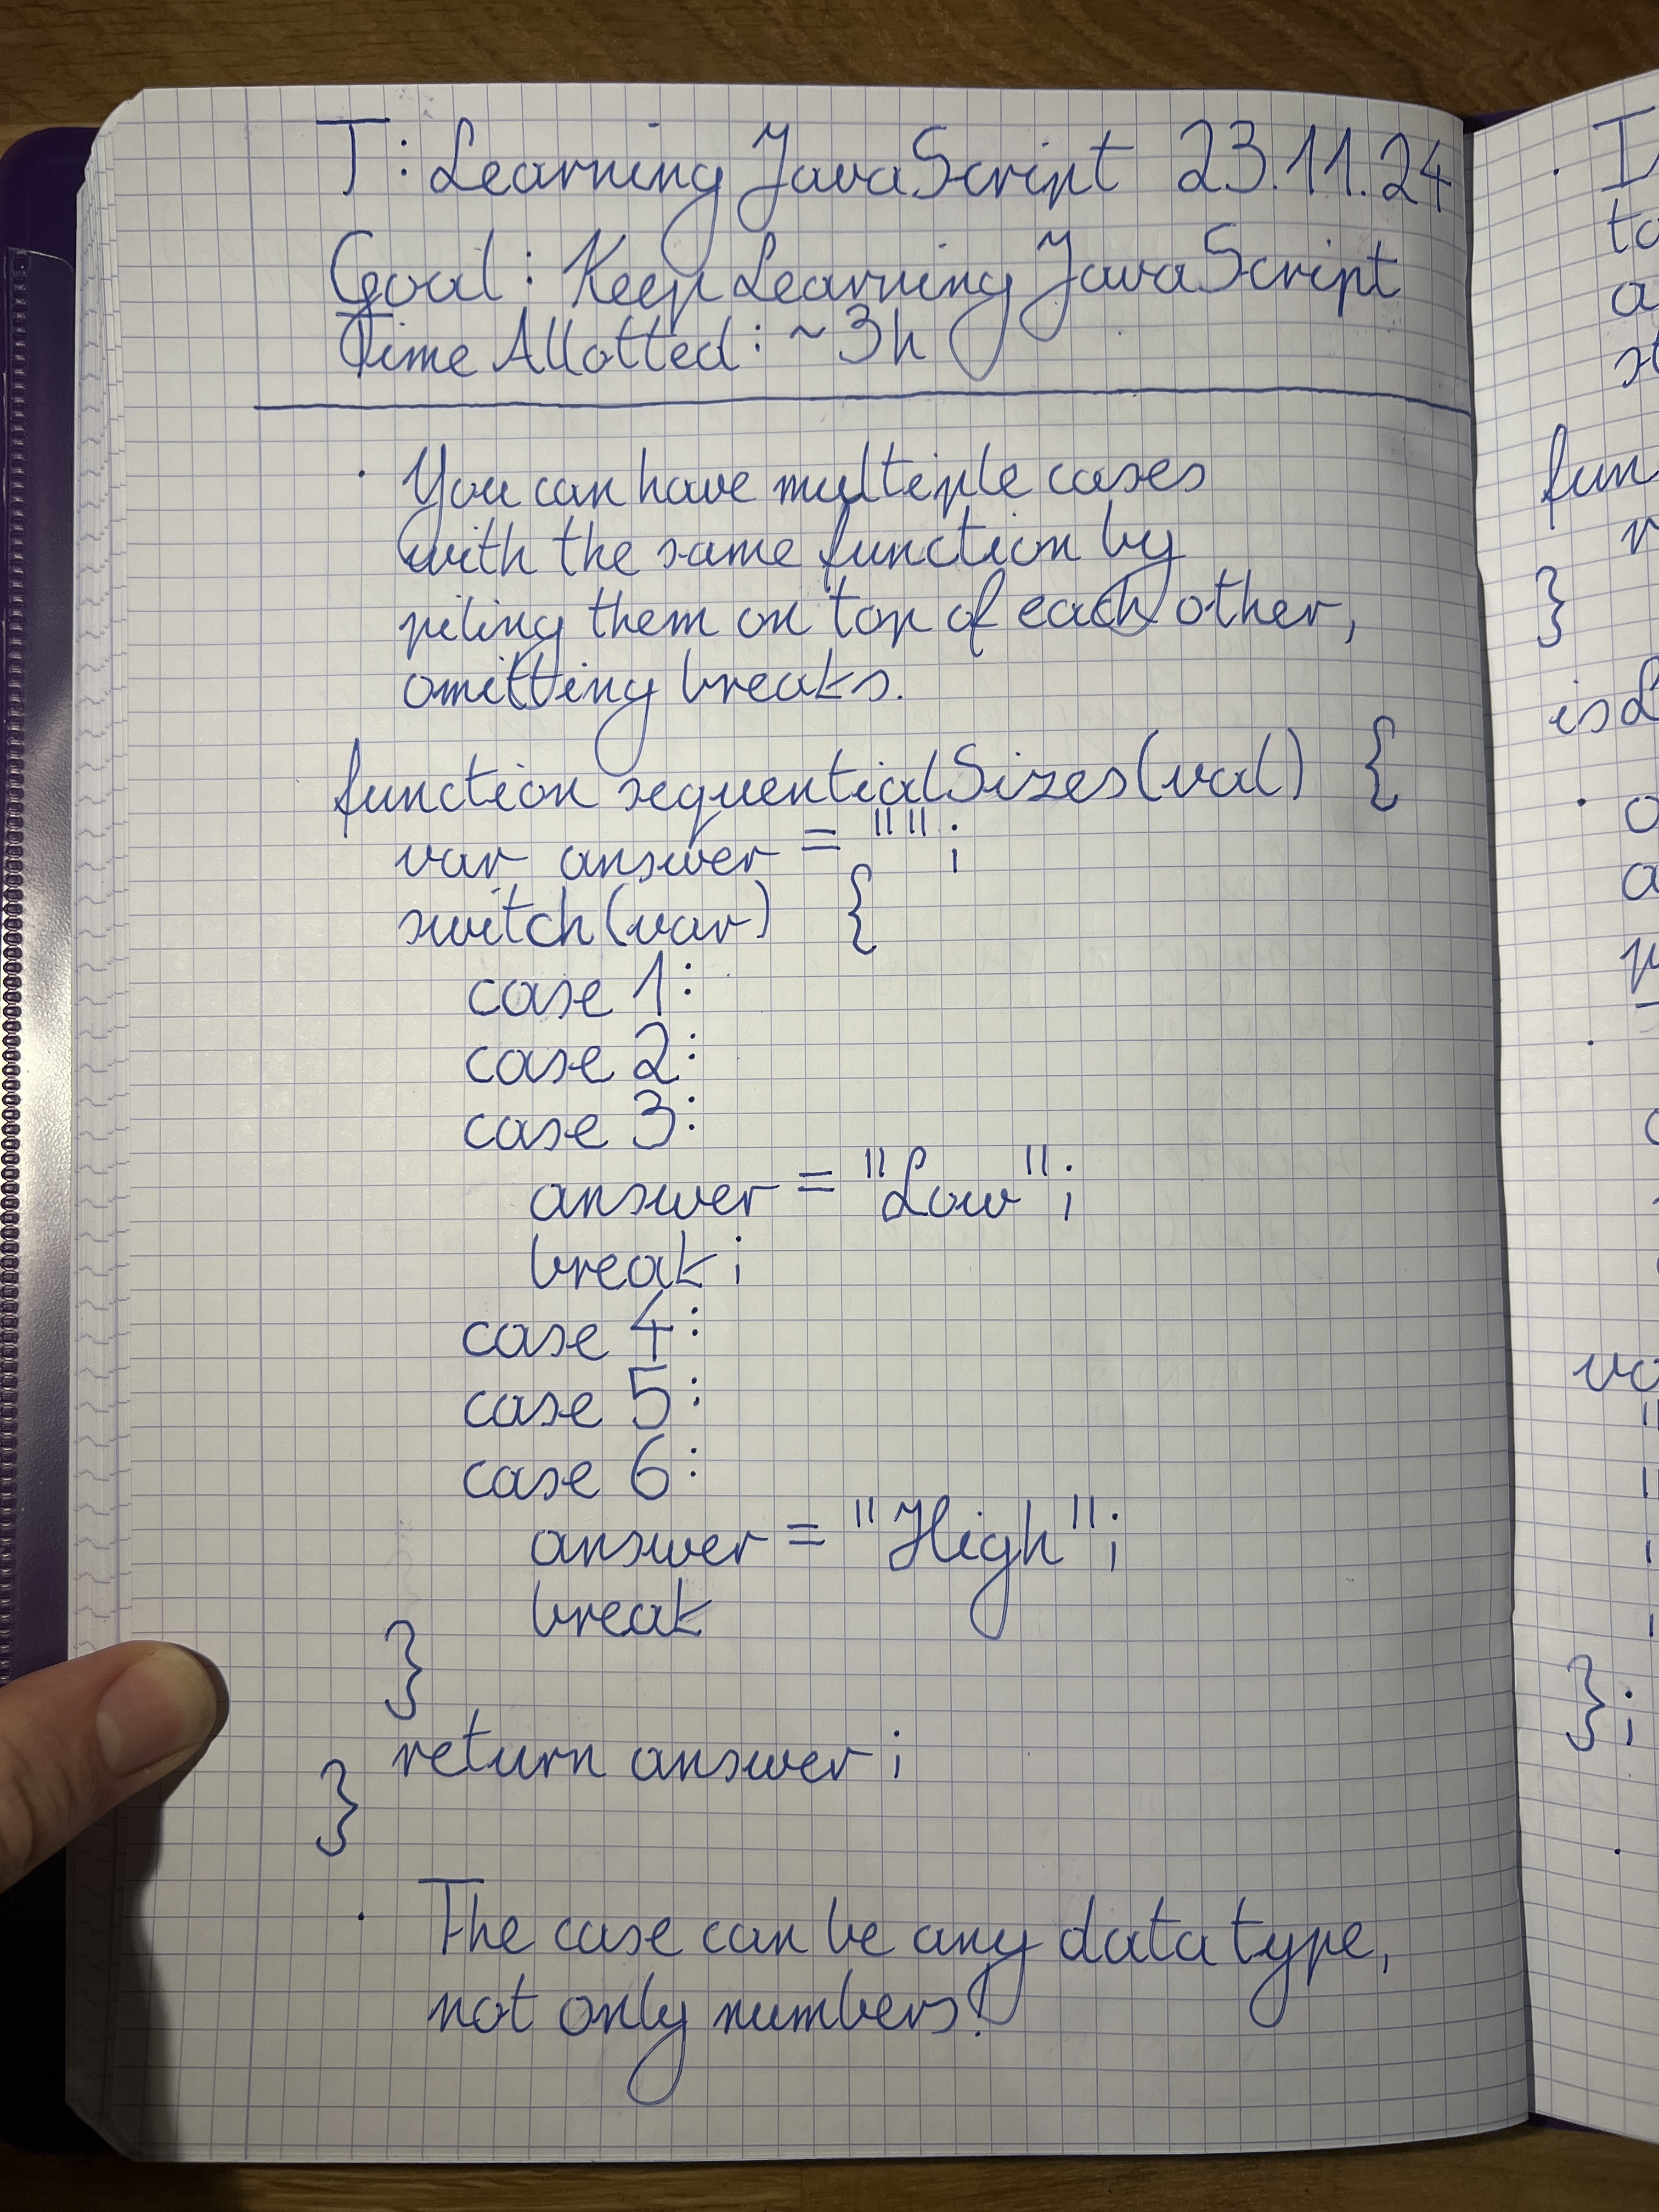 T: Learning JavaScript 23.11.24
Goal: Keep Learning JavaScript
Time Allotted: ~3h
· You can have multiple cases
with the same function by
piling them on top of each other,
omitting breaks.
function sequentialSizes(val) {
var answer = "";
switch(var) {
case 1:
case 2:
case 3:
answer = "Low";
break;
case 4:
case 5:
case 6:
answer = "High";
break
}
return answer;
}
· The case can be any data type,
not only numbers!
fun
}
is
};